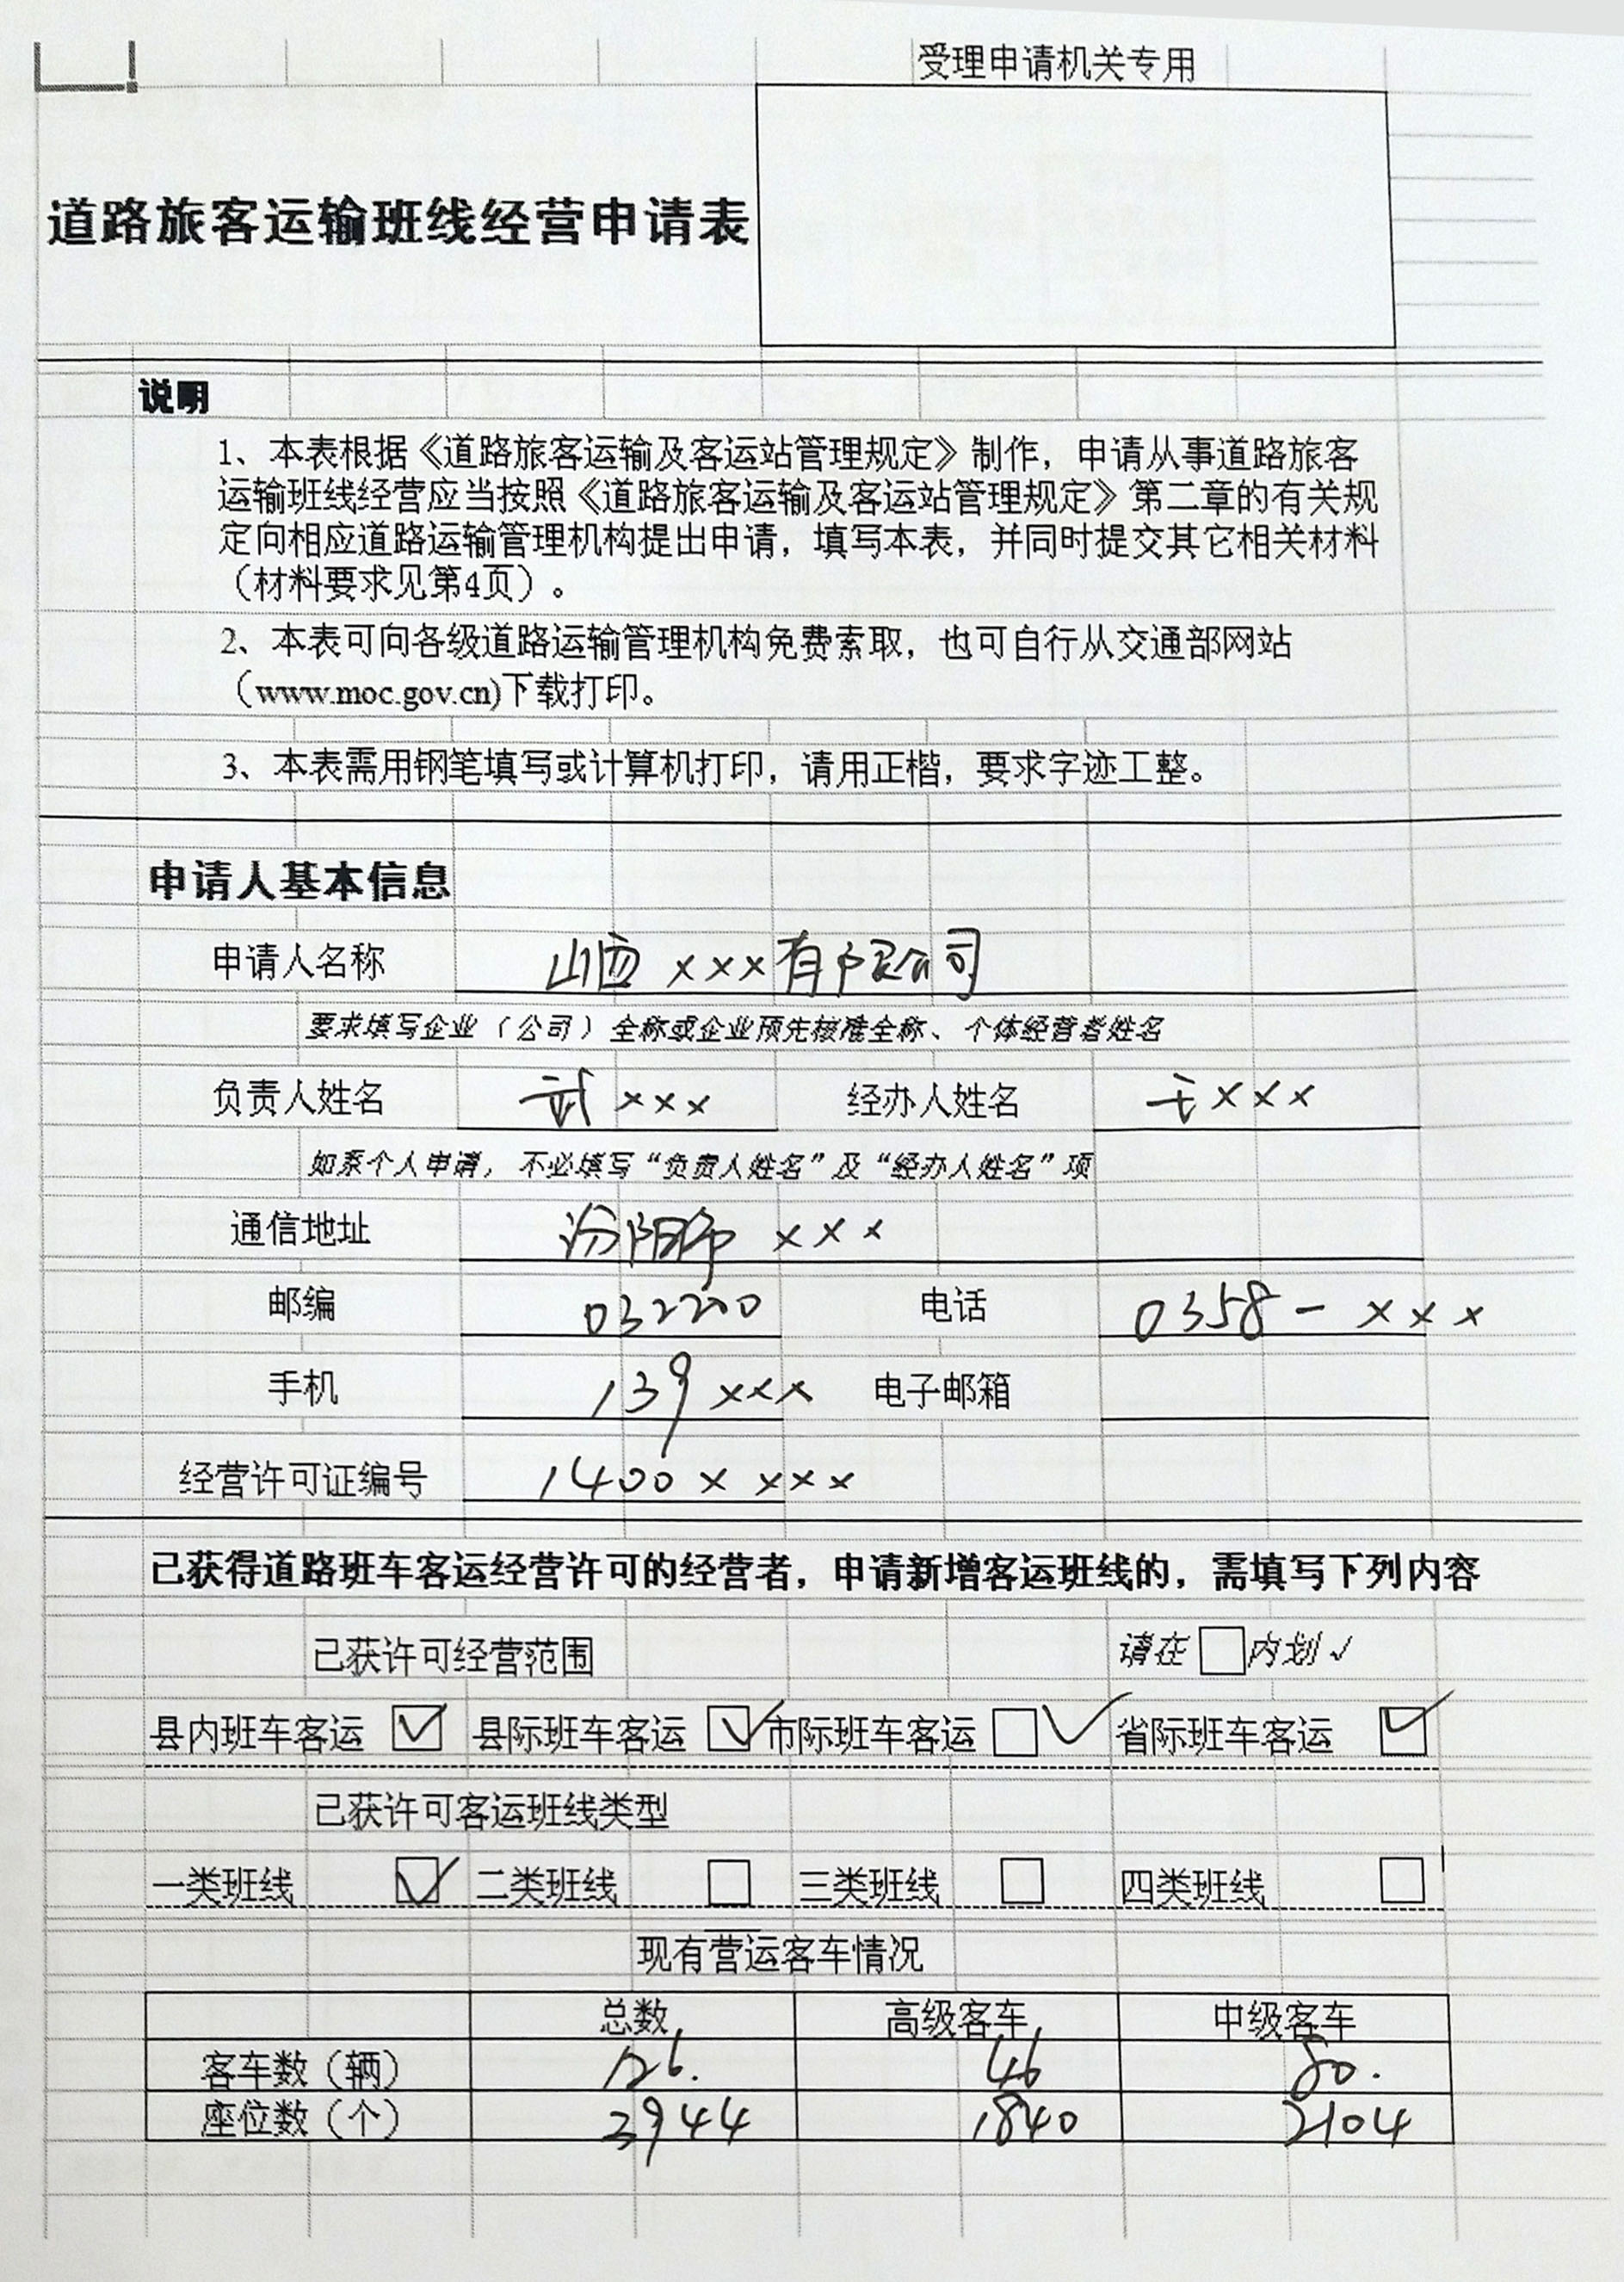 受理申请机关专用
道路旅客运输班线经营申请表
说明
1、本表根据《道路旅客运输及客运站管理规定》制作，申请从事道路旅客
运输班线经营应当按照《道路旅客运输及客运站管理规定》第二章的有关规
定向相应道路运输管理机构提出申请，填写本表，并同时提交其它相关材料
（材料要求见第4页）。
2、本表可向各级道路运输管理机构免费索取，也可自行从交通部网站
（www.moc.gov.cn)下载打印。
3、本表需用钢笔填写或计算机打印，请用正楷，要求字迹工整。
申请人基本信息
申请人名称 山西 xxx有限公司
要求填写企业（公司）全称或企业预先核准全称、个体经营者姓名
负责人姓名 武 xxx 经办人姓名 xxx
如系个人申请，不必填写“负责人姓名”及“经办人姓名”项
通信地址 汾阳市 xxx
邮编 032200 电话 0358-xxx
手机 139xxx 电子邮箱
经营许可证编号 1400x xxx
已获得道路班车客运经营许可的经营者，申请新增客运班线的，需填写下列内容
已获许可经营范围 请在□内划✓
县内班车客运 ☑ 县际班车客运 ☑ 市际班车客运 □✓ 省际班车客运 ☑
已获许可客运班线类型
一类班线 ☑ 二类班线 □ 三类班线 □ 四类班线 □
现有营运客车情况
总数 高级客车 中级客车
客车数（辆） 126. 46 80.
座位数（个） 3944 1840 2104